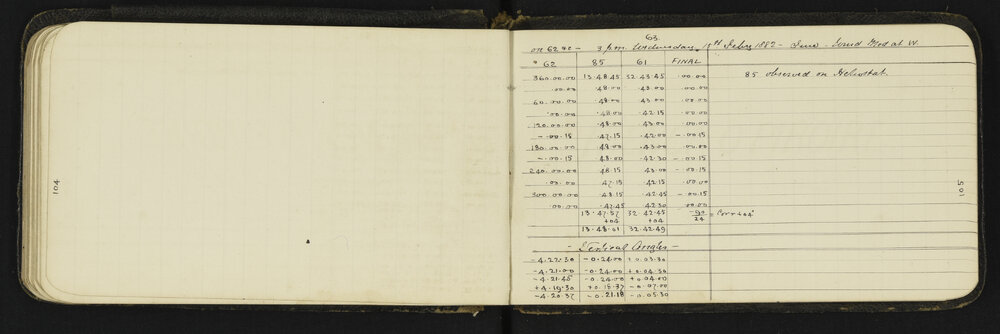 104
63
on 62 3 p.m. Wednesday, 15th Feby 1882 - Fine - Wind Mod at W.
62 85 61 FINAL
360.00.00 13.48.45 32.43.45 .00.00 85 observed on Heliostat.
.00.00 .48.00 .43.00 .00.00
60.00.00 .48.00 .43.00 .00.00
.00.00 .48.00 .42.15 .00.00
120.00.00 .48.00 .43.00 .00.00
-.00.15 .47.15 .42.00 -.00.15
180.00.00 .48.00 .43.00 .00.00
-.00.15 .48.00 .42.30 -.00.15
240.00.00 .48.15 .43.00 -.00.15
.00.00 .47.15 .42.15 .00.00
300.00.00 .48.15 .42.45 -.00.15
.00.00 .47.45 .42.30 .00.00
13.47.57 32.42.45 -90/24 = Corr +04"
+04 +04
13.48.01 32.42.49
- Vertical Angles -
-4.22.30 -0.24.00 +0.03.30
-4.21.00 -0.24.00 +0.04.30
-4.21.45 -0.24.00 +0.04.00
+4.19.30 +0.18.37 -0.07.00
-4.20.37 -0.21.18 -0.05.30
105